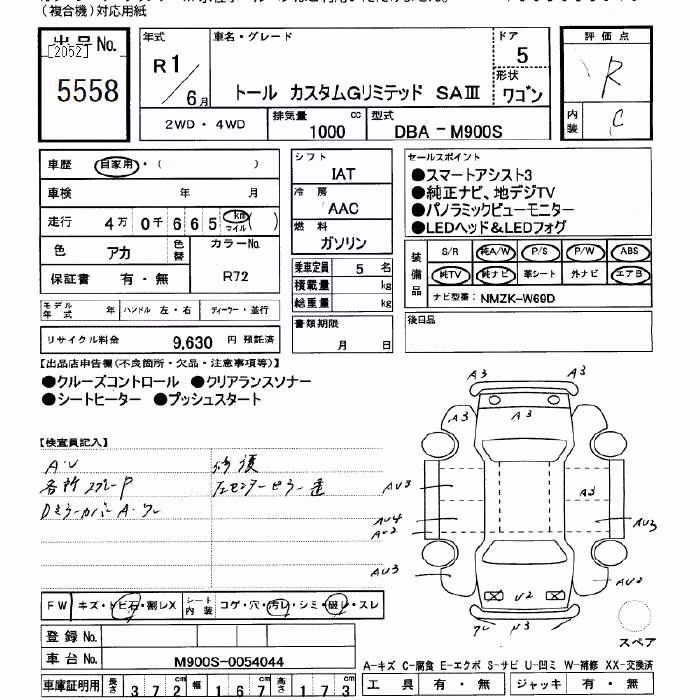 （複合機）対応用紙
出品No.
[2052]
5558
年式
R1／6月
車名・グレード
トール カスタムGリミテッド SAⅢ
ドア
5
形状
ワゴン
評価点
R
内装
C
2WD・4WD
排気量
1000 cc
型式
DBA－M900S
車歴 自家用・（ ）
車検 年 月
走行 4万 0千 6 6 5 km マイル（ ）
色 アカ 色替
カラーNo.
R72
保証書 有・無
シフト
IAT
冷房
AAC
燃料
ガソリン
乗車定員 5 名
積載量 kg
総重量 kg
書類期限
月 日
セールスポイント
●スマートアシスト3
●純正ナビ、地デジTV
●パノラミックビューモニター
●LEDヘッド＆LEDフォグ
装備品
S/R 純A/W P/S P/W ABS
純TV 純ナビ 革シート 外ナビ エアB
ナビ型番： NMZK-W69D
後日品
モデル年式 年 ハンドル 左・右 ディーラー・並行
リサイクル料金 9,630 円 預託済
【出品店申告欄（不良箇所・欠品・注意事項等）】
●クルーズコントロール ●クリアランスソナー
●シートヒーター ●プッシュスタート
【検査員記入】
A・U
修復
各所
Dミラーカバー A・ワレ
センターピラー
A3 A3
A3 A3 A3
AU3
A3
AU4
AU3
AU2
AU3
AU2
U2
U3
スペア
FW キズ・トビ石・割レX シート内装 コゲ・穴・汚レ・シミ・破レ・スレ
登録No.
車台No. M900S-0054044
車庫証明用 長さ 372 幅 167 高さ 173
A－キズ C－腐食 E－エクボ S－サビ U－凹ミ W－補修 XX－交換済
工具 有・無 ジャッキ 有・無